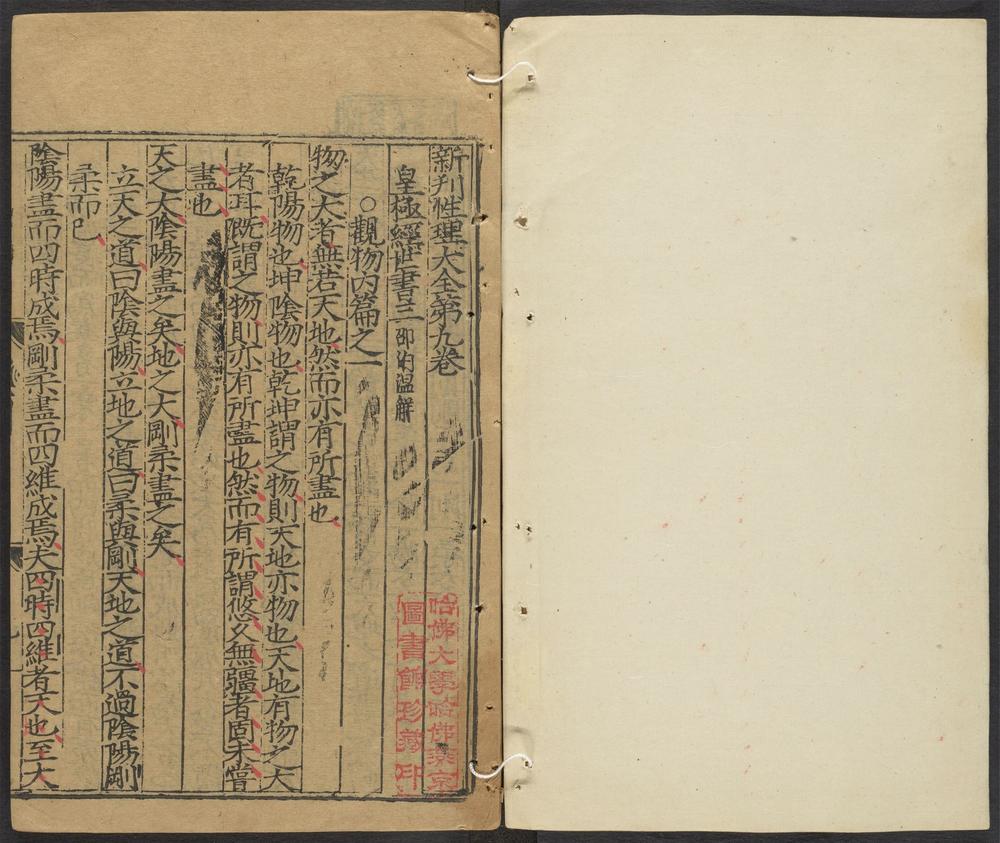 新刊性理大全第九卷
皇極經世書三 邵伯溫解
○觀物內篇之一
物之大者無若天地然而亦有所盡也
乾陽物也坤陰物也乾坤謂之物則天地亦物也天地有物之大
者耳既謂之物則亦有所盡也然而有所謂悠久無疆者固未嘗
盡也
天之大陰陽盡之矣地之大剛柔盡之矣
立天之道曰陰與陽立地之道曰柔與剛天地之道不過陰陽剛
柔而已
陰陽盡而四時成焉剛柔盡而四維成焉夫四時四維者天也至大
哈佛大學哈佛燕京
圖書館珍藏印